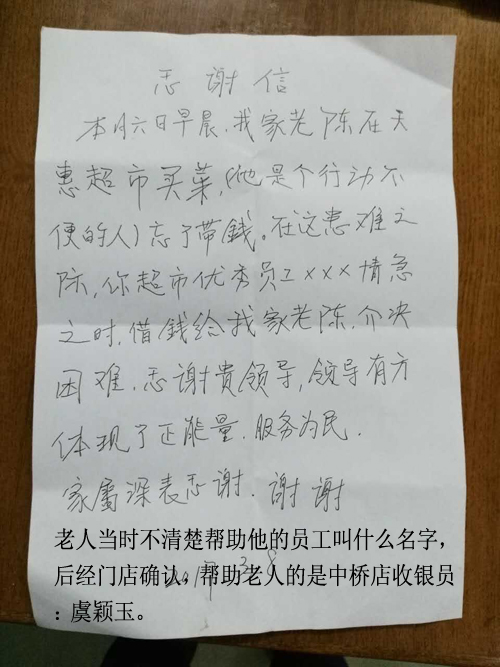 志谢信
本月六日早晨.我家老陈在天
惠超市买菜,(他是个行动不
便的人)忘了带錢。在这患难之
际,你超市优秀员工×××情急
之时.借錢给我家老陈.介决
困难.志谢贵领导,领导有方
体现了正能量.服务为民.
家属深表志谢.谢谢
老人当时不清楚帮助他的员工叫什么名字,
后经门店确认,帮助老人的是中桥店收银员
:虞颖玉。